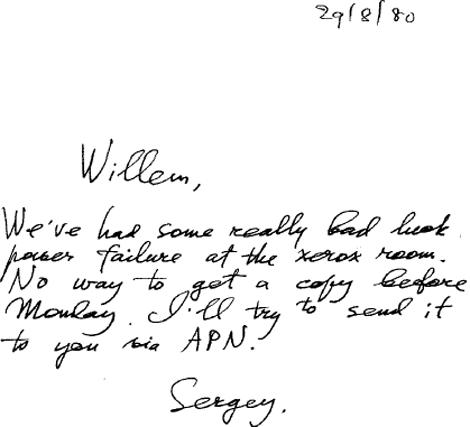 29/8/80
Willem,
We've had some really bad luck.
power failure at the xerox room.
No way to get a copy before
Monday. I'll try to send it
to you via APN.
Sergey.